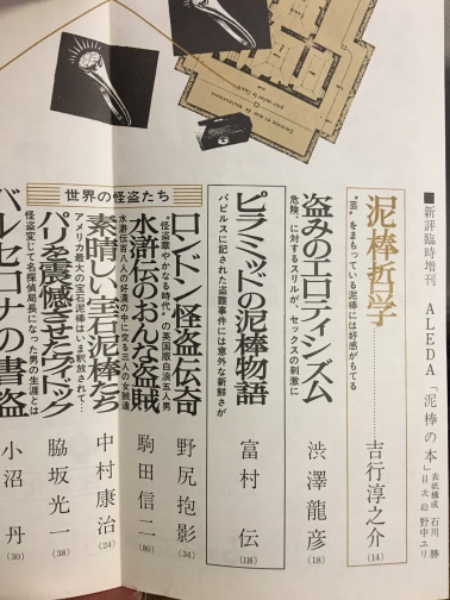 ■新評臨時増刊 ALEDA「泥棒の本」
表紙構成 石川 勝
目次絵 野中ユリ
泥棒哲学
吉行淳之介
(14)
“芸”をまもっている泥棒には好感がもてる
盗みのエロティシズム
澁澤龍彦
(18)
危険、に対するスリルが、セックスの刺激に
ピラミッドの泥棒物語
富村 伝
(118)
パピルスに記された盗難事件には意外な新鮮さが
世界の怪盗たち
ロンドン怪盗伝奇
野尻抱影
(34)
“怪盗華やかなる時代”の英国版白浪五人男
水滸伝のおんな盗賊
駒田信二
(80)
水滸伝百八人の好漢の中に交る三人の女賊達
素晴しい宝石泥棒たち
中村康治
(24)
アメリカ最大の宝石泥棒はいま釈放されて…
パリを震憾させたヴィドック
脇坂光一
(38)
怪盗変じて名探偵局長になった男の生涯とは
バルセロナの書盗
小沼 丹
(30)